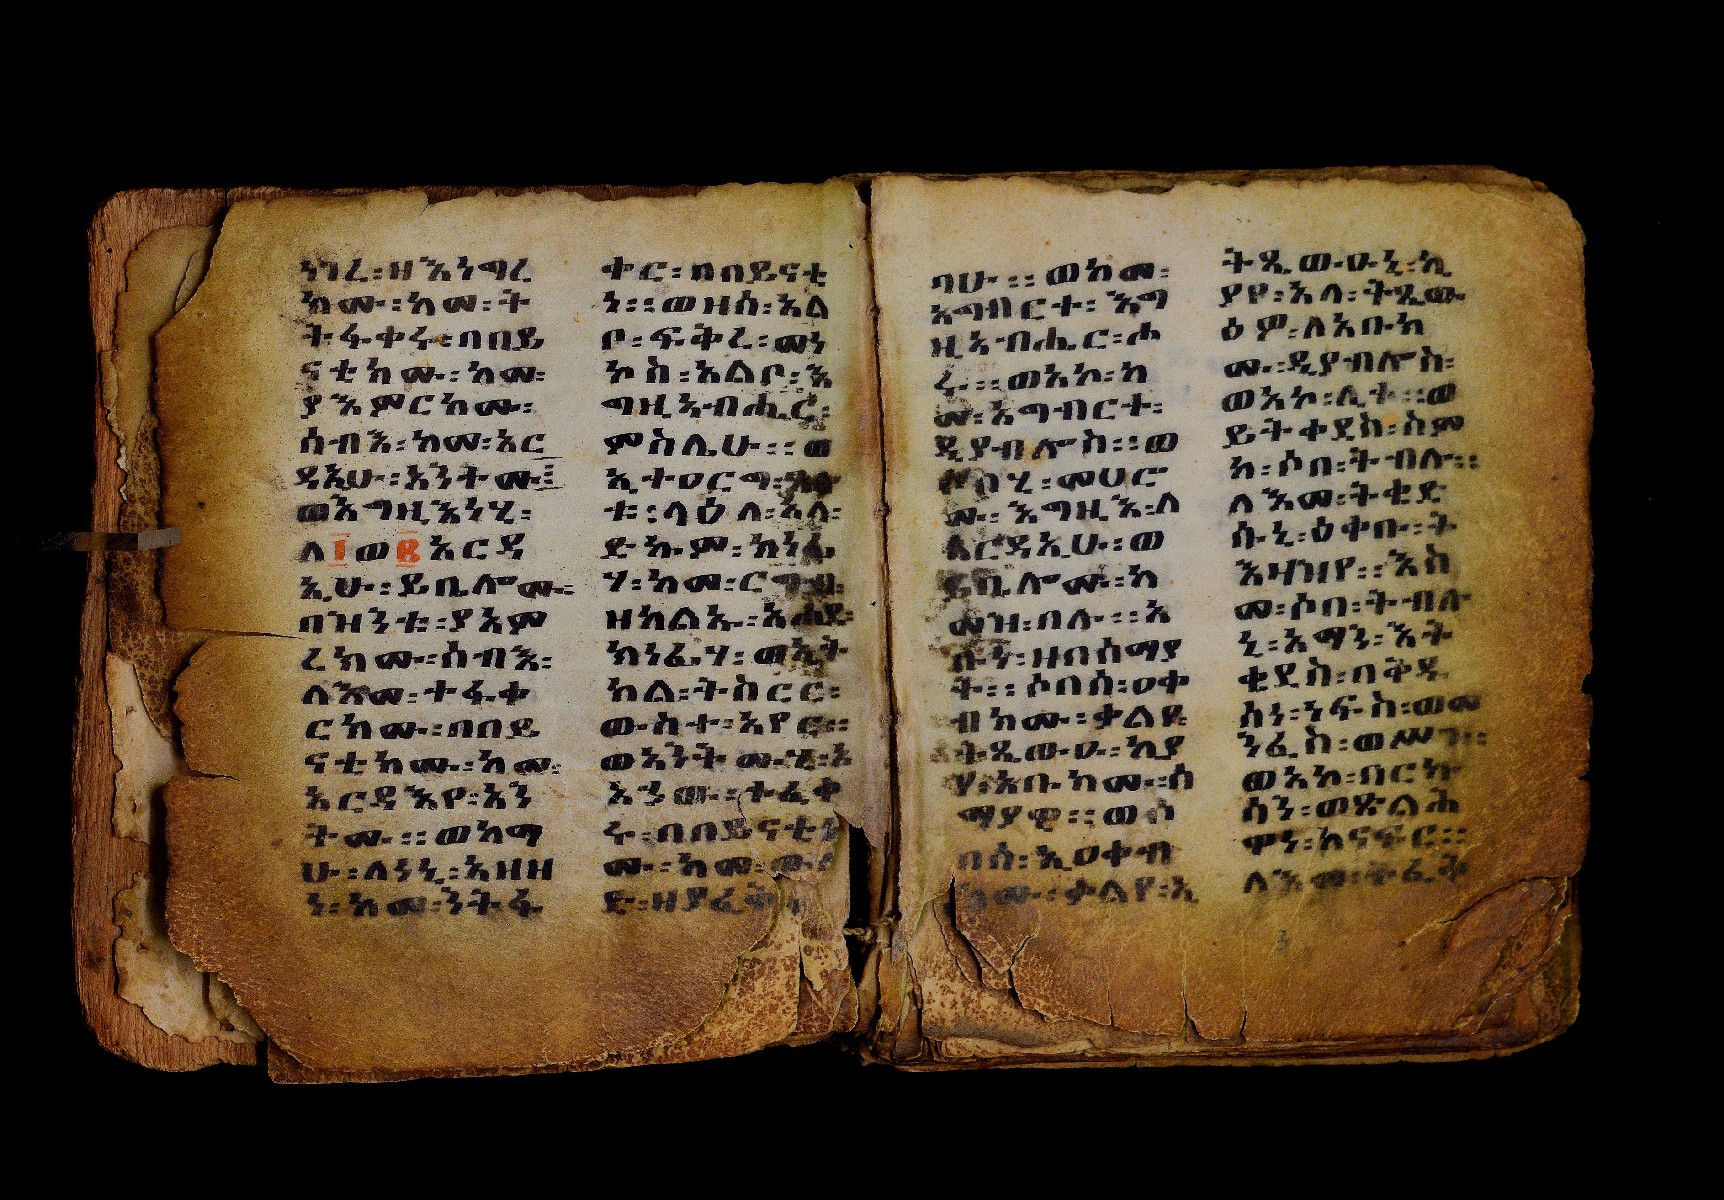 ነገረ፡ዘእነግረ
ክሙ፡ከመ፡ት
ትፋቀሩ፡በበይ
ናቲክሙ፡ከመ፡
ያእምርክሙ፡
ሰብእ፡ከመ፡አር
ዳእሁ፡አንትሙ፡
ወእግዚእነሂ፡
ለ፲ወ፪አርዳ
ኢሁ፡ይቢሎሙ፡
በዝንቱ፡ያአም
ረክሙ፡ሰብእ፡
ለእመ፡ተፋቀ
ርክሙ፡በበይ
ናቲክሙ፡ከመ፡
አርዳእየ፡አን
ትሙ፡፡ወከማ
ሁ፡ለነኒ፡አዘዘ
ነ፡ከመ፡ንትፋ
ቀር፡በበይናቲ
ነ፡፡ወዘሰ፡አል
ቦ፡ፍቅረ፡መነ
ኮስ፡አልቦ፡እ
ግዚአብሔር፡
ምስሌሁ፡፡ወ
ኢተዐርግ፡
ቱ፡ላዕለ፡አሐ፡
ድኡም፡ክነፊ
ሃ፡ከመ፡ርግብ፡
ዘከልኡ፡አሐዱ
ክነፊሃ፡ወኢት
ክል፡ትስርር፡
ውስተ፡አየር፡፡
ወአንትሙሂ፡እ
አኀው፡ተፈቀ
ሩ፡በበይናቲ
ሙ፡ከመ፡ወል
ድ፡ዘያፈቅር
ባሁ፡፡ወከመ፡
አግብርተ፡እግ
ዚአብሔር፡ሐ
ረ፡፡ወአኮ፡ከ
መ፡አግብርተ፡
ዲያብሎስ፡፡ወ
ሶበሂ፡መሀሮ
ሙ፡እግዚእ፡ለ
አርዳኢሁ፡ወ
ይቢሎሙ፡ከ
መዝ፡በሉ፡፡አ
ቡነ፡ዘበሰማያ
ት፡፡ሶበሰ፡ዐቀ
ብክሙ፡ቃልየ፡
ትጼውዑ፡ኪያ
ሃ፡አቡክሙ፡ሰ
ማያዊ፡፡ወሶ
በሰ፡ኢዐቀብ
ክሙ፡ቃልየ፡ኢ
ትጼውዑኒ፡ኪ
ያየ፡አላ፡ትጼው
ዕም፡ለአቡክ
ሙ፡ዲያብሎስ፡
ወአኮ፡ሊተ፡፡ወ
ይትቀደስ፡ስም
ከ፡ሶበ፡ትብሉ፡፡
ለእመ፡ትቄድ
ሱኒ፡ዕቀቡ፡ት
እዛዝየ፡፡እስ
መ፡ሶበ፡ትብሉ
ኒ፡አማን፡እት
ቄደስ፡በቅዱ
ሰን፡ንፍስ፡ወመ
ንፈስ፡ወሥጋ፡፡
ወአኮ፡በርኩ
ሰን፡ወጽልሕ
ዋነ፡ከናፍር፡፡
ለእመ፡ተፈቅ